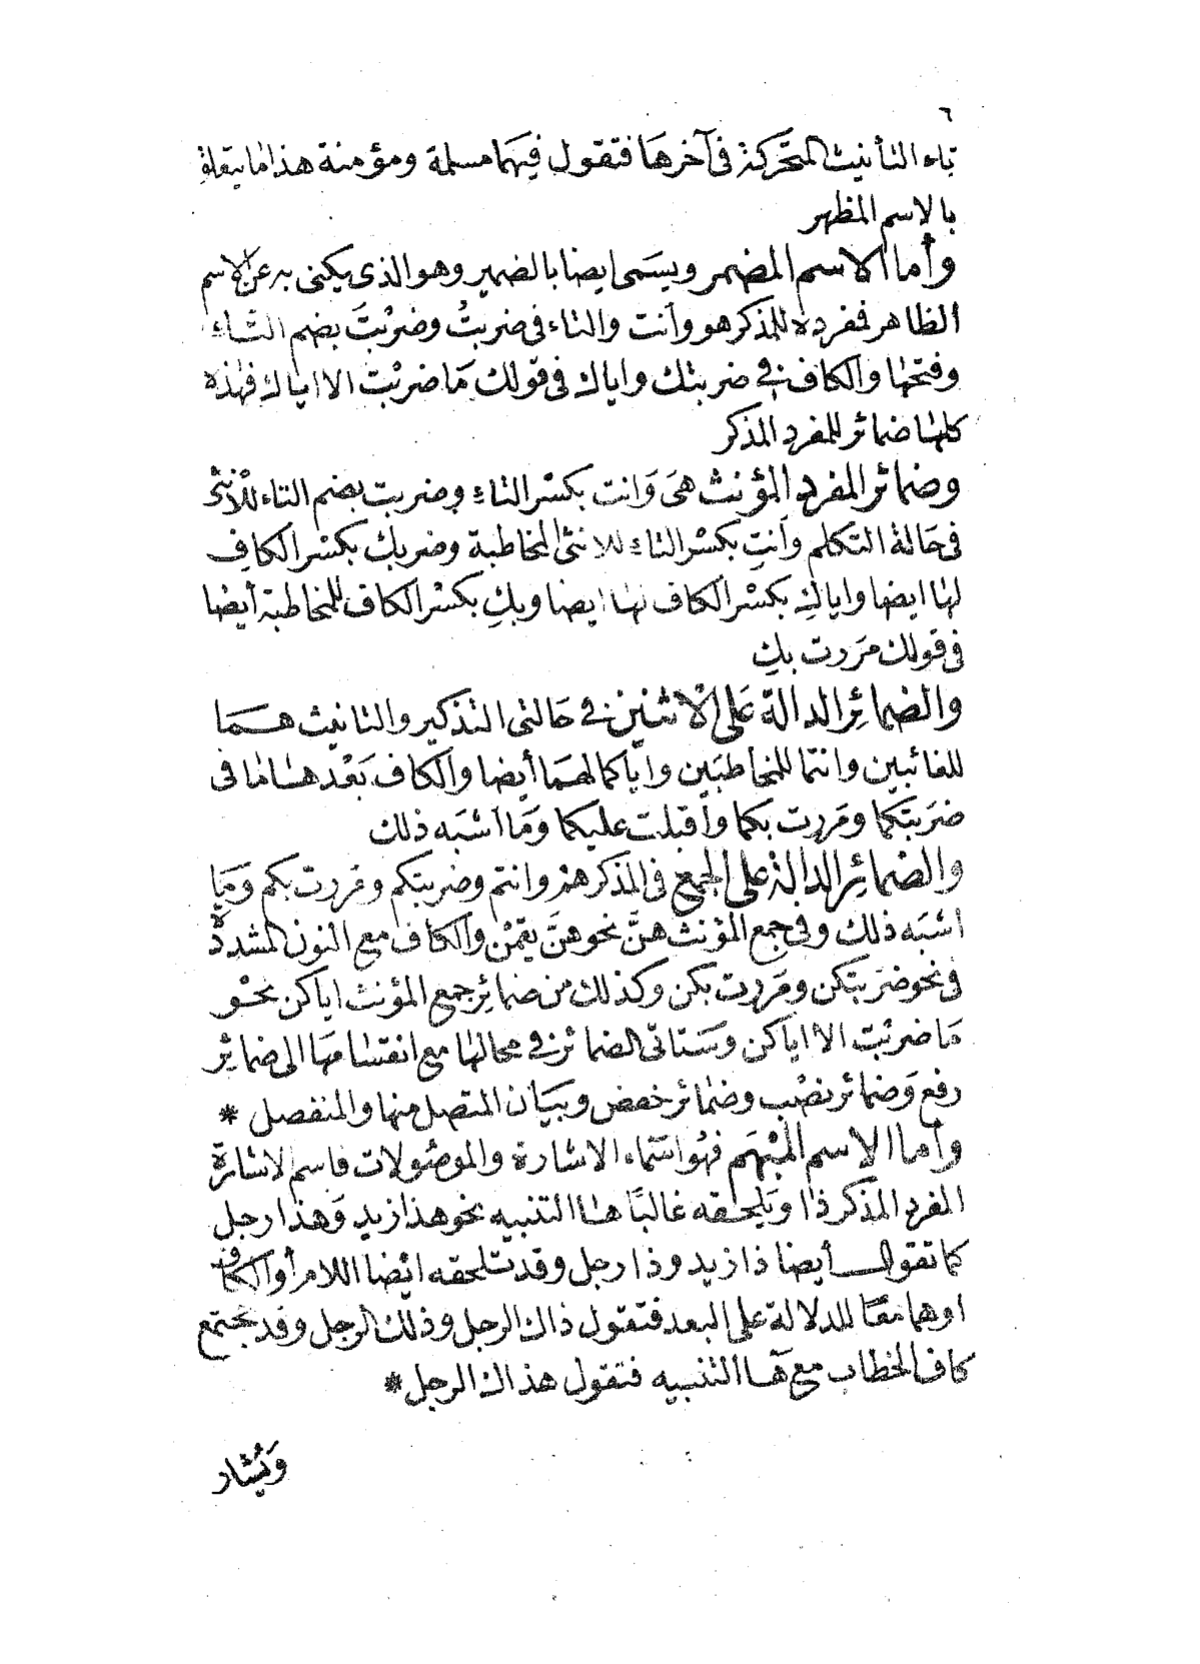 ٦
تاء التأنيث المتحركة فى آخرها فتقول فيهما مسلمة ومؤمنة هذا ما يتعلق
بالاسم المظهر
وأما الاسم المضمر ويسمى ايضا بالضمير وهو الذى يكنى به عن الاسم
الظاهر فمفرده للمذكر هو وأنت والتاء فى ضربتُ وضربْتَ بضم التاء
وفتحها والكاف فى ضربتك واياك فى قولك مَا ضربْت الا اياك فهذه
كلها ضمائر للمفرد المذكر
وضمائر المفرد المؤنث هىَ وَانت بكسْر التاءِ وضربت بضم التاء للْأنثى
فى حَالة التكلم وأنتِ بكسْر التاءِ للانثى المخاطبة وضربكِ بكسْر الكافِ
لها ايضا واياكِ بكسْر الكاف لها ايضا وبكِ بكسْر الكاف للمخاطبة أيضا
فى قولك مَررت بكِ
والضمائِر الدالة عَلى الْاثنين فى حَالتى التذكير والتانيث همَا
للغائبين وانتما للمخاطبَين واياكما لهمَا أيضا والكاف بَعْدهَا ما فى
ضرَبتكما ومَررت بكما وأقبلت عليكما وَمَا أشبَه ذلك
والضمائِر الدالة على الجمع فى المذكر هم وانتم وضربتكم ومَررت بكم وَمَا
اشبَه ذلك وفى جمع المؤنث هنَّ نحو هنَّ يقمْن والكاف مع النون المشددة
فى نحو ضرَبتكن ومَررت بكن وكذلك من ضمائِر جمع المؤنث اياكن نحْو
مَا ضربْت الا اياكن وسَتاتى الضمائر فى محالها مع انقسامهَا الى ضمائر
رفع وَضمائر نصْب وضمائر خفض وبيَان المتصل منها والمنفصل *
وأما الاسم المبْهَم فهُو اسَماء الاشارة والموصُولات فاسم الاشارة
المفرد المذكر ذا وَيلحقه غالبًا هَا التنبيه نحو هذا زيد وَهذا رجل
كما تقول أيضا ذا زيد وذا رجل وقد تلحقه ايْضا اللام أو الكاف
اوهما معًا للدلالة على البعد فتقول ذاك الرجل وذلك الرجل وقد تجتمع
كاف الخطاب مع هَا التنبيه فتقول هذاك الرجل *
وَيُشار